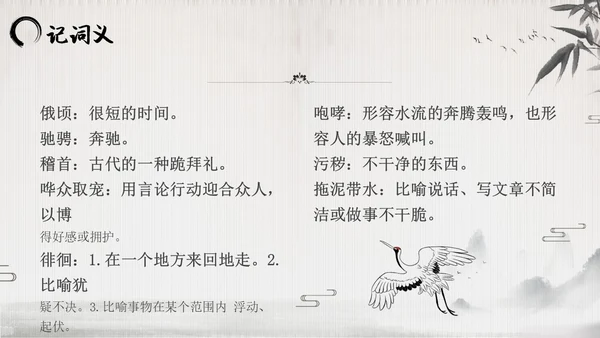 记词义
俄顷：很短的时间。
驰骋：奔驰。
稽首：古代的一种跪拜礼。
哗众取宠：用言论行动迎合众人，
以博
得好感或拥护。
徘徊：1.在一个地方来回地走。2.
比喻犹
疑不决。3.比喻事物在某个范围内 浮动、
起伏。
咆哮：形容水流的奔腾轰鸣，也形
容人的暴怒喊叫。
污秽：不干净的东西。
拖泥带水：比喻说话、写文章不简
洁或做事不干脆。